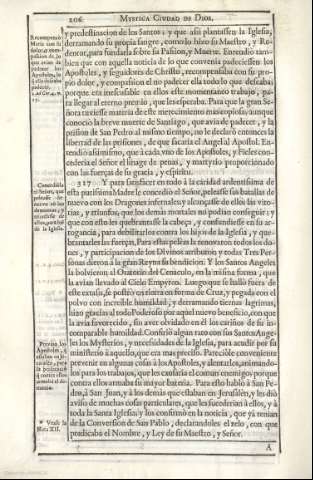 206
MYSTICA CIUDAD DE DIOS.
y predestinacion de los Santos; y que assi plantassen la Iglesia,
derramando su propia sangre, como lo hizo su Maestro, y Re-
dentor, para fundarla sobre su Passion, y Muerte. Entendiò tam-
bien que con aquella noticia de lo que convenia padeciessen los
Apostoles, y seguidores de Christo, recompensaba con su pro-
pio dolor, y compassion el no padecer ella todo lo que desseaba;
porque era inescusable en ellos este momentaneo trabajo, pa-
ra llegar al eterno premio, que les esperaba. Para que la gran Se-
ñora tuviesse materia de este merecimiento mas copioso, aunque
conociò la breve muerte de Santiago, que avia de padecer, y la
prision de San Pedro al mismo tiempo, no le declarò entonces la
libertad de las prisiones, de que sacaria el Angel al Apostol. En-
tendiò assimismo, que à cada uno de los Apostoles, y Fieles con-
cederia el Señor el linage de penas, y martyrio proporcionado
con las fuerças de su gracia, y espiritu.
317 Y para satisfacer en todo à la caridad ardentissima de
esta purissima Madre le concediò el Señor, pelease sus batallas de
nuevo con los Dragones infernales, y alcançasse de ellos las vito-
rias, y triunfos, que los demàs mortales no podian conseguir; y
que con esto les quebrantasse la cabeça, y confundiesse en su ar-
rogancia, para debilitarlos contra los hijos de la Iglesia, y que-
brantarles las fuerças. Para estas peleas la renovaron todos los do-
nes, y participacion de los Divinos atributos, y todas Tres Per-
sonas dieron à la gran Reyna su bendicion. Y los Santos Angeles
la bolvieron al Oratorio del Cenaculo, en la misma forma, que
la avian llevado al Cielo Empyreo. Luego que se hallò fuera de
este extasis, se postrò en tierra en forma de Cruz, y pegada con el
polvo con increible humildad; y derramando tiernas lagrimas,
hizo gracias al todo Poderoso por aquel nuevo beneficio, con que
la avia favorecido, sin aver olvidado en èl los cariños de su in-
comparable humildad. Confiriò algun rato con sus Santos Ange-
les los Mysterios, y necessidades de la Iglesia, para acudir por su
ministerio à aquello, que era mas preciso. Pareciòle conveniente
prevenir en algunas cosas à los Apostoles, y alentarlos, animando-
los para los trabajos, que les causaria el comun enemigo; porque
contra ellos armaba su mayor bateria. Para esto hablò à San Pe-
dro, à San Juan, y à los demàs que estaban en Jerusalèn, y les diò
aviso de muchas cosas particulares, que les sucederian à ellos, y à
toda la Santa Iglesia; y los confirmò en la noticia, que yà tenian
de la Conversion de San Pablo, declarandoles el zelo, con que
predicaba el Nombre, y Ley de su Maestro, y Señor.
A
Recompensò
Maria con su
dolor, y com-
passion de lo
que avian de
padecer los
Apostoles, lo
Concediòle
el Señor, que
de la Iglesia.
Previno los
Apostoles,
* Vease la
Nota XII.